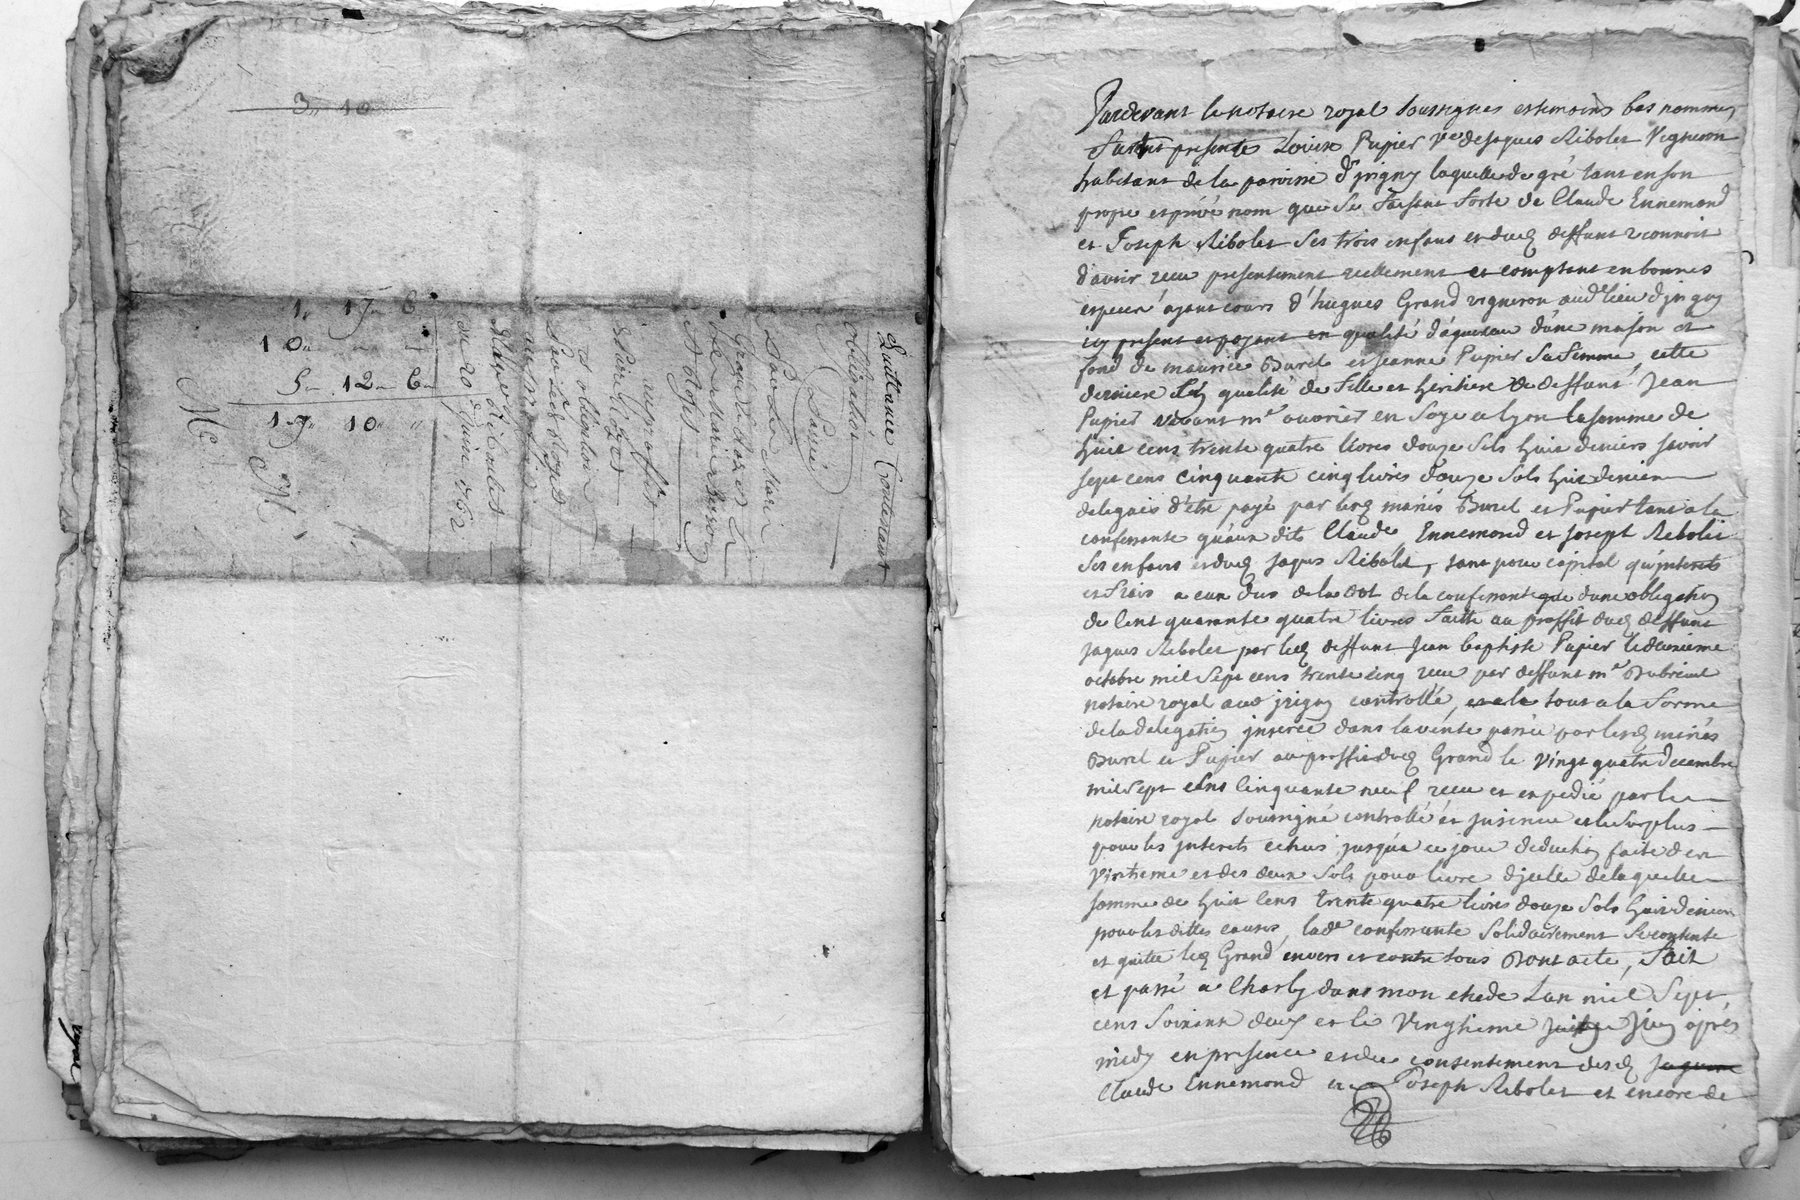 3,, 10
1,, 17,, 6
10,, ,, ,,
5,, 12,, 6
19,, 10 ,,
Quittance Contenant
obligation
Passé
Par
Marie
et
obligation
du 20 Juin 1762
Pardevant le notaire royal soussigné et temoins bas nommés
fut presente Louise Pupier Ve de Jaques Ribolet Vigneron
habitant de la paroisse d'jrigny laquelle de gré tant en son
propre et privé nom que se faisant forte de Claude Ennemond
et Joseph Ribolet ses trois enfans et dud deffunt reconnoit
d'avoir receu presentement reellement et comptant en bonnes
especes ayant cours d'hugues Grand vigneron aud lieu d'jrigny
icy present et payant en qualité d'aquereur d'une maison et
fond de maurice Burel et Jeanne Pupier sa femme, cette
derniere en qualité de fille et heritiere de deffunt Jean
Pupier vivant me ouvrier en soye a lyon la somme de
huit cens trente quatre livres douze sols huit deniers savoir
sept cens cinquante cinq livres douze sols huit deniers
delegués d'être payé par lesd mariés Burel et Pupier tant a la
confessante qu'aux dits Claude, Ennemond et Joseph Ribolet
ses enfans et dud Jaques Ribolet, tant pour capital qu'interets
et frais a eux dus de la dot de la confessante que d'une obligation
de cent quarante quatre livres faitte au proffit dud deffunt
Jaques Ribolet par led deffunt Jean baptiste Pupier le deuxieme
octobre mil sept cens trente cinq receu par deffunt me Dubreuil
notaire royal aud jrigny controllé, et a la tout a la forme
de la delegation inserée dans la vente passée par lesd mariés
Burel et Pupier au proffit dud Grand le vingt quatre decembre
mil sept cens cinquante neuf receu et expedié par le
notaire royal soussigné controllé et jnsinué et le surplus
pour les jnterets echus jusqu'a ce jour deduction faite d'un
vintieme et des deux sols pour livre d'jcelle de laquelle
somme de huit cens trente quatre livres douze sols huit deniers
pour les dittes causes, lade confessante solidairement se contente
et quitte led Grand envers et contre tous Dont acte, fait
et passé a Charly dans mon etude l'an mil sept
cens soixante deux et le vingtieme Juin après
midy en presence et du consentement desd
Claude Ennemond et Joseph Ribolet et encore de